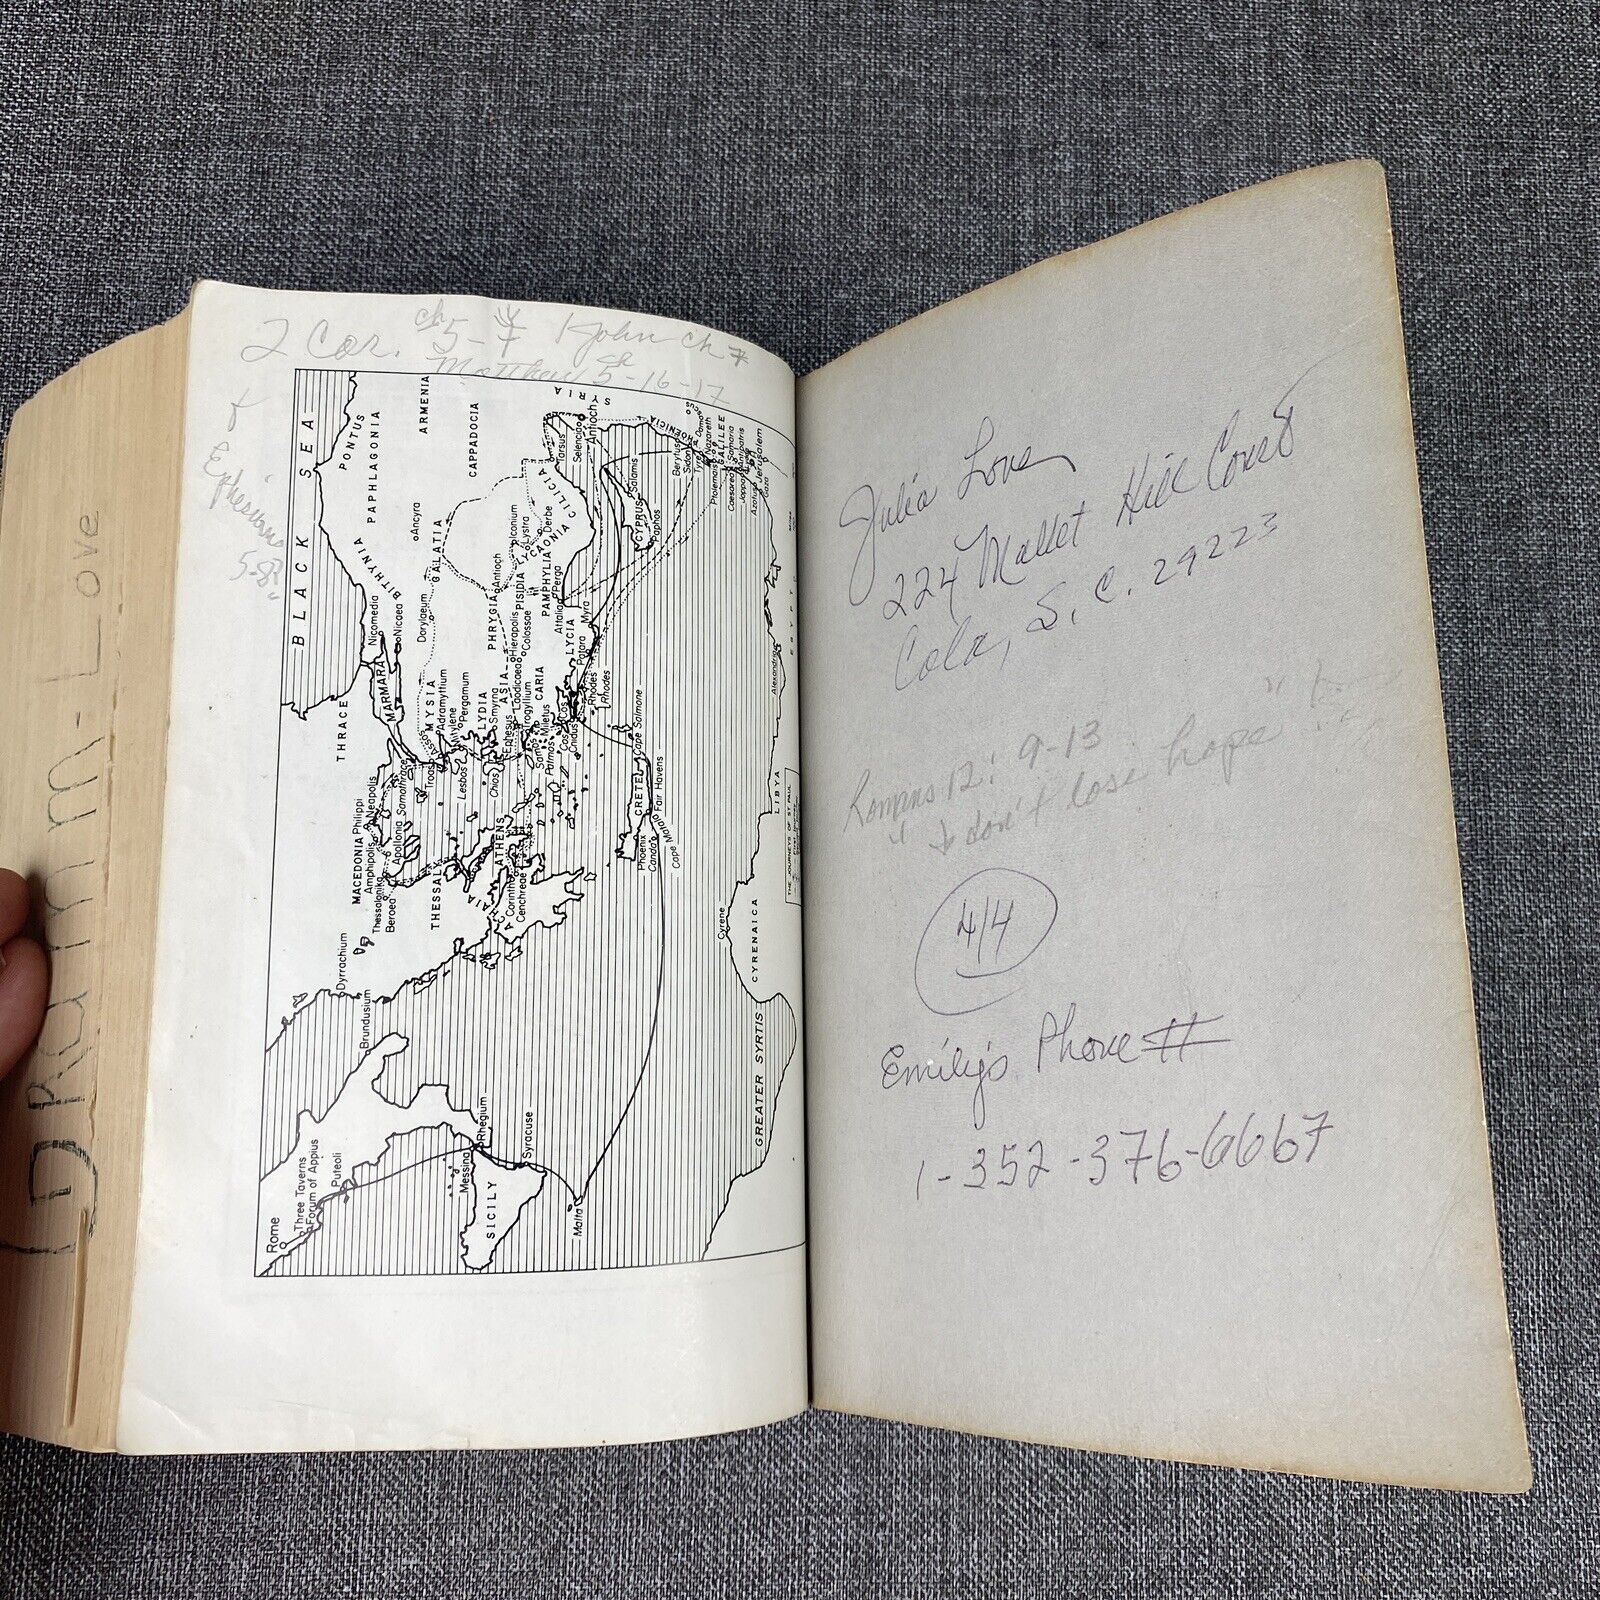 DRamm-Love
2 Cor. ch 5-7 1 John ch 7
Matthew 5-16-17
Ephesians
5-8
BLACK SEA
PONTUS
PAPHLAGONIA
BITHYNIA
ARMENIA
CAPPADOCIA
SYRIA
GALATIA
Ancyra
Dorylaeum
Nicomedia
Nicaea
MARMARA
THRACE
MYSIA
Adramyttium
Pergamum
Mitylene
Lesbos
Troas
ASSOS
LYDIA
Smyrna
Chios
Ephesus
ASIA
PHRYGIA
Antioch
PISIDIA
Iconium
Lystra
Derbe
CILICIA
Tarsus
Seleucia
Antioch
Hierapolis
Laodicea
Colossae
Trogyllium
Samos
Miletus
Patmos
CARIA
Cos
Cnidus
LYCIA
Patara
Myra
PAMPHYLIA
Perga
Attalia
Rhodes
Rhodes
CYPRUS
Salamis
Paphos
PHOENICIA
Damascus
Berytus
Sidon
Tyre
Ptolemais
Nazareth
GALILEE
Caesarea
Samaria
Joppa
Antipatris
Azotus
Jerusalem
Gaza
MACEDONIA
Philippi
Neapolis
Amphipolis
Thessalonika
Apollonia
Samothrace
Beroea
THESSALY
ATHENS
ACHAIA
Corinth
Cenchreae
Dyrrachium
Brundusium
CRETE
Cape Salmone
Fair Havens
Phoenix
Cauda
Cape Matala
Alexandria
EGYPT
LIBYA
THE JOURNEYS OF ST PAUL
Cyrene
CYRENAICA
GREATER SYRTIS
Rome
Three Taverns
Forum of Appius
Puteoli
Messina
Rhegium
SICILY
Syracuse
Malta
Julia Love
224 Mallet Hill Court
Cola, S.C. 29223
Romans 12: 9-13
" I don't lose hope "
414
Emily's Phone #
1-352-376-6667